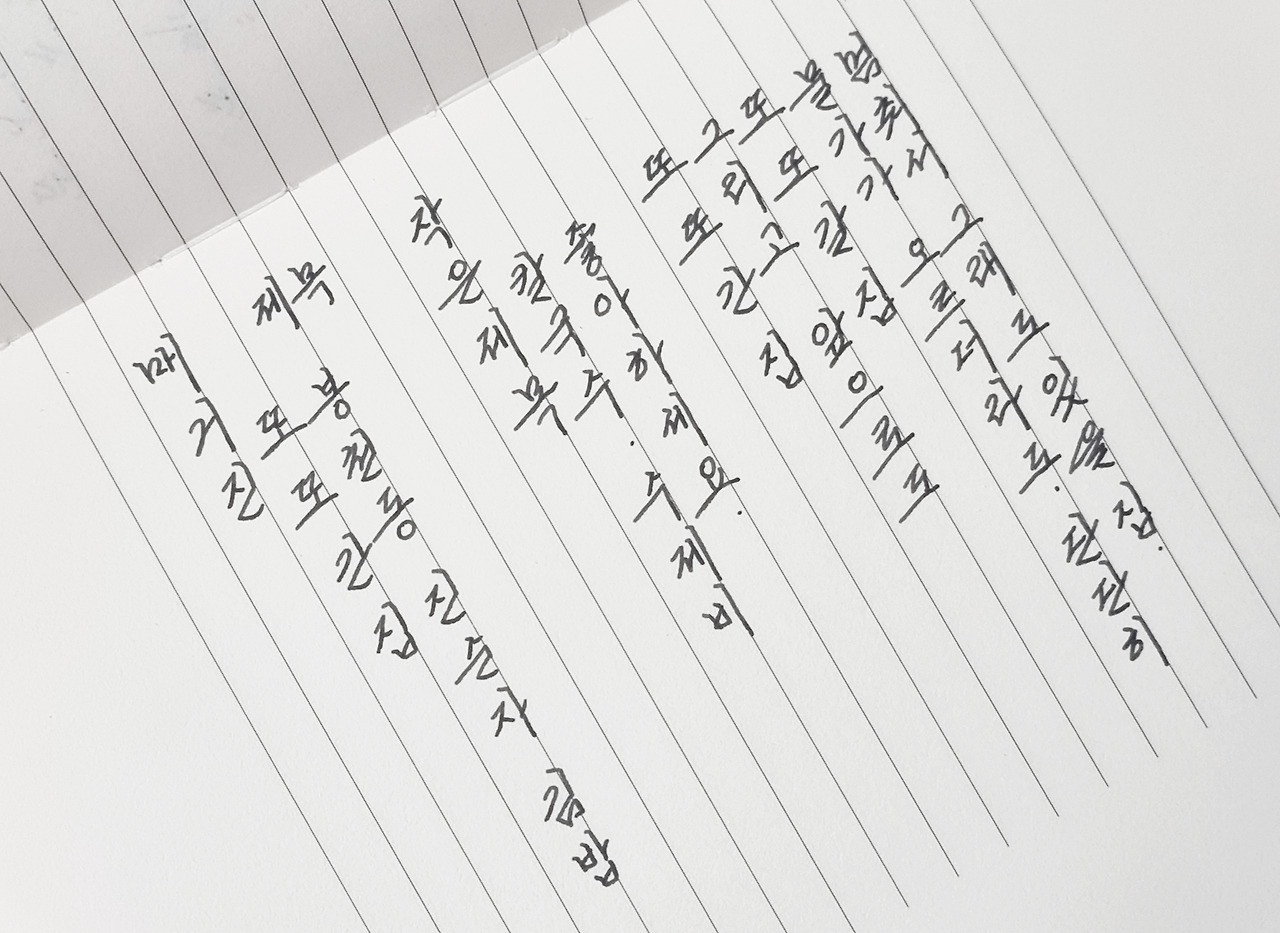 매거진
제목
또또간집
봉천동 진순자 김밥
작은제목
칼국수. 수제비
좋아하세요.
또또간집
그리고 앞으로도
또또갈집
물가가 오르더라도. 단단히
멈춰서 그래도 있을 집.